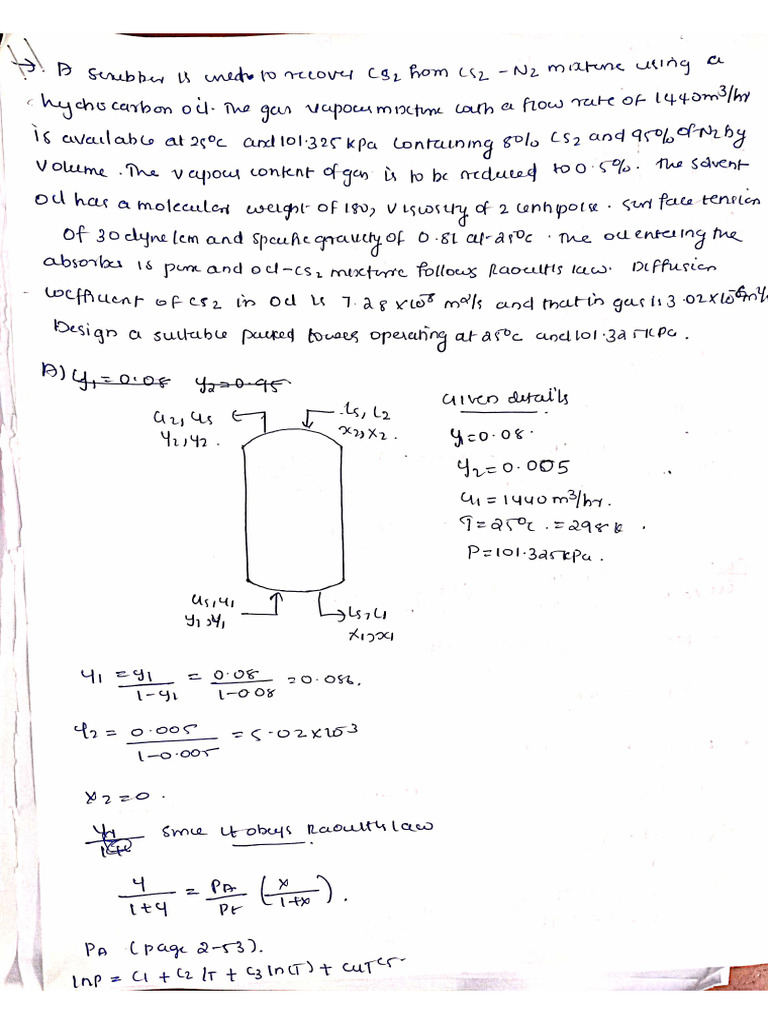 →. A scrubber is used to recover CS2 from CS2 - N2 mixture using a
hydrocarbon oil. The gas vapour mixture with a flow rate of 1440m³/hr
is available at 25°C and 101.325 kPa containing 80% CS2 and 95% of N2 by
Volume. The vapour content of gas is to be reduced to 0.5%. The solvent
oil has a molecular weight of 180, viscosity of 2 centipoise. Surface tension
of 30 dyne/cm and specific gravity of 0.81 at 25°C. The oil entering the
absorber is pure and oil-CS2 mixture follows Raoult's law. Diffusion
coefficient of CS2 in oil is 7.28 x10⁻⁸ m²/s and that in gas is 3.02x10⁻⁶m²/s
Design a suitable packed tower operating at 25°C and 101.325KPa.
A) y1 = 0.08 y2=0.95
G2, GS
Y2, y2.
LS, L2
x2, X2.
Given details
y1=0.08.
y2=0.005
G1=1440m³/hr.
T=25°C.=298k.
P=101.325KPa.
GS, G1
y1, Y1
LS, L1
X1, x1
Y1 = y1/1-y1 = 0.08/1-0.08 = 0.086.
Y2 = 0.005/1-0.005 = 5.02x10⁻³
X2=0.
Since it obeys Raoult's law
Y/1+Y = PA/Pt (X/1+X).
PA (page 2-53).
lnP = C1 + C2/T + C3 ln(T) + C4T^C5